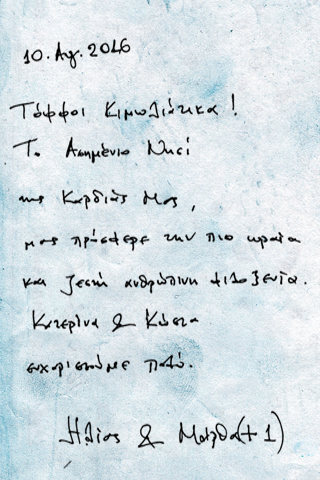 10. Αυγ. 2016
Τόφφοι Κιμωλιάτικα!
Το Ασημένιο Νησί
της Καρδιάς Μας,
μας πρόσφερε την πιο ωραία
και ζεστή ανθρώπινη φιλοξενία.
Κατερίνα & Κώστα
ευχαριστούμε πολύ.
Ηλίας & Μάρθα (+1)